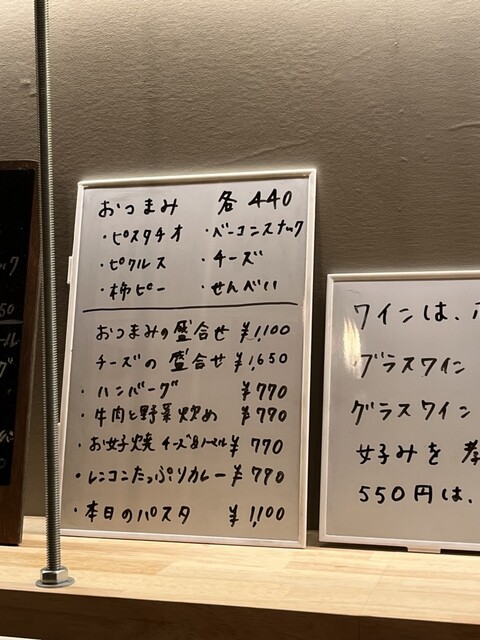 おつまみ 各 440
・ピスタチオ ・ベーコンスナック
・ピクルス ・チーズ
・柿ピー ・せんべい
おつまみの盛合せ ¥1,100
チーズの盛合せ ¥1,650
・ハンバーグ ¥770
・牛肉と野菜炒め ¥790
・お好焼 ¥770
・レンコンたっぷりカレー ¥790
・本日のパスタ ¥1,100
ワインは、
・グラスワイン
グラスワイン
好みを
550円は、
50